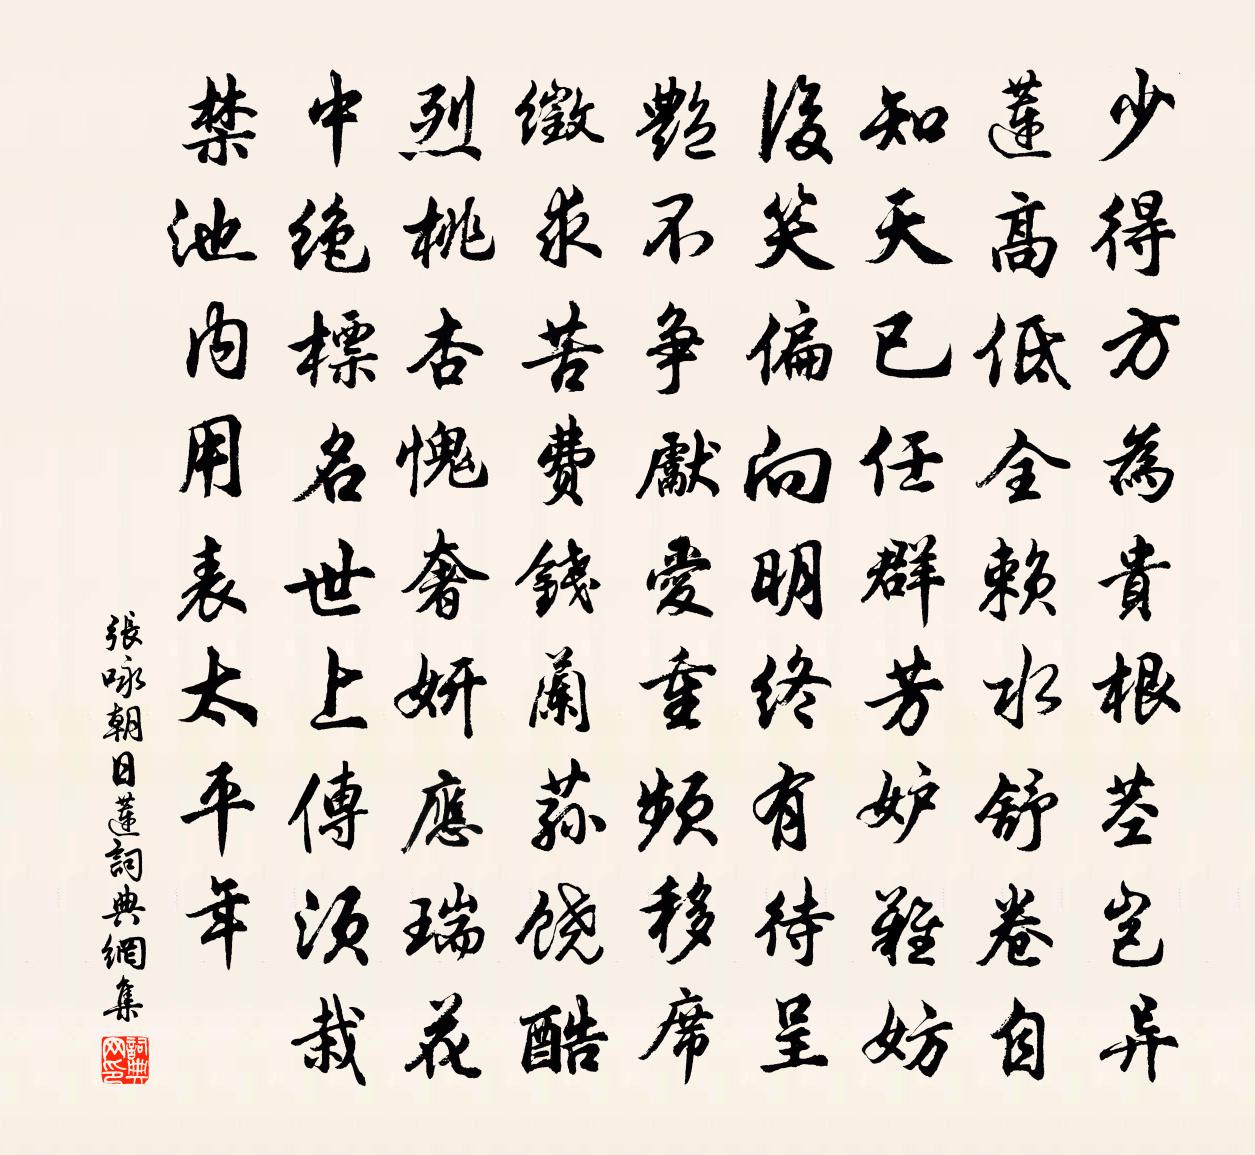 少得方為貴根莖豈异
蓮高低全賴水舒卷自
知天已任群芳妒難妨
後笑偏向明終有待呈
艷不争獻愛重頻移席
徵求苦費錢蘭蓀饒酷
烈桃杏愧奢妍應瑞花
中绝標名世上傳須栽
禁池内用表太平年
張咏朝日蓮詞典網集
詞典网印